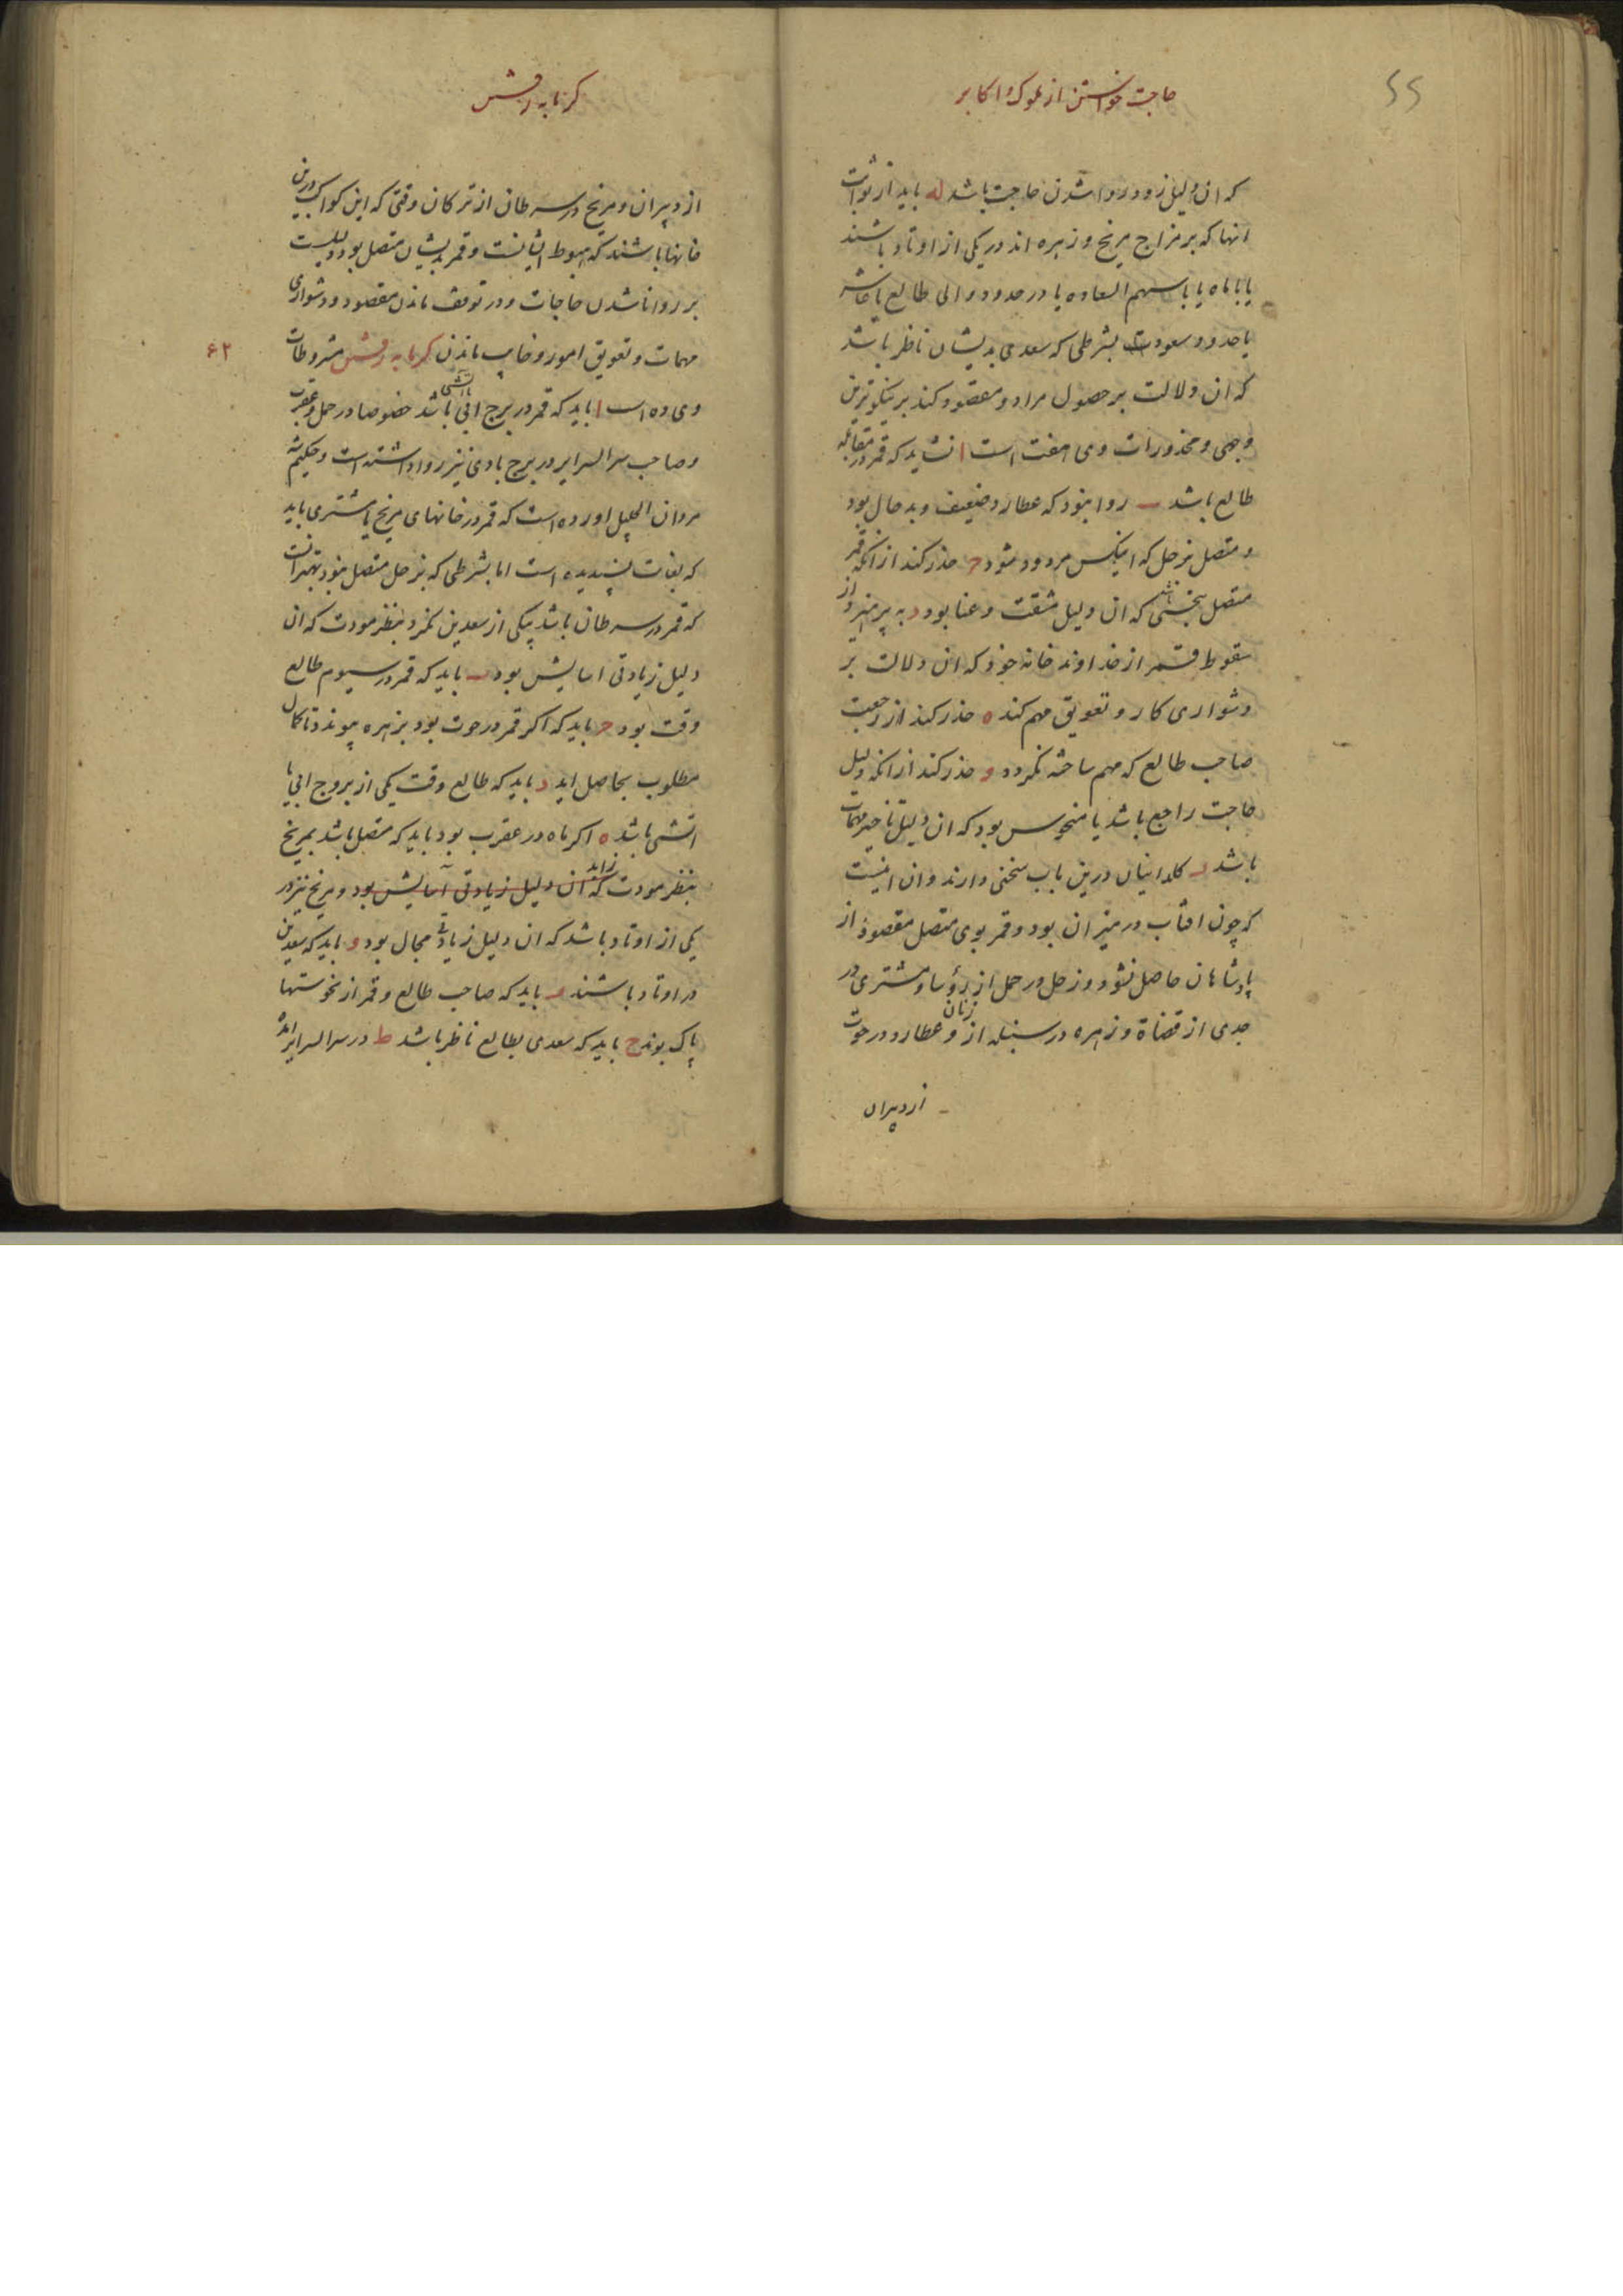 ۶۶
حاجت خواستن از ملوک و اکابر
که ان دلیل زود روا شدن حاجت باشد له باید از ثوابت
انها که بر مزاج مریخ و زهره اند در یکی از اوتاد باشند
یا با ماه یا با سهم السعاده یا در حدود والی طالع یا عاشر
یا حدود سعود بشرطی که سعدی بدیشان ناظر باشد
که ان دلالت بر حصول مراد و مقصود کند بر نیکوترین
وجهی و محذورات وی هفت است ا نشاید که قمر در مقابله
طالع باشد ب روا نبود که عطارد ضعیف و بد حال بود
و متصل بزحل که انیکس مردود شود ج حذر کند از انکه قمر
متصل بنحسی باشد که ان دلیل مشقت و عنا بود د به پرهیزد از
سقوط قمر از خداوند خانه خود که ان دلالت بر
دشواری کار و تعویق مهم کند ه حذر کند از رجعت
صاحب طالع که مهم ساخته نکردد و حذر کند از انکه دلیل
حاجت راجع باشد یا منحوس بود که ان دلیل تاخیر مهمات
باشد ز کلدانیان درین باب سخنی دارند و ان اینست
که چون افتاب در میزان بود و قمر بوی متصل مقصود از
پادشاهان حاصل نشود و زحل در حمل از رؤسا و مشتری در
جدی از قضاة و زهره در سنبله از زنان و عطارد در حوت
از دبیران
کرمابه رفتن
از دبیران و مریخ در سرطان از ترکان وقتی که این کواکب درین
خانها باشند که هبوط ایشانست و قمر بدیشان متصل بود دلیلست
بر روا ناشدن حاجات و در توقف ماندن مقصود و دشواری
مهمات و تعویق امور و خایب ماندن کرمابه رفتن مشروطات
۶۲
وی ده است ا باید که قمر در برج ابی یا اتشی باشد خصوصا در حمل و عقرب
و صاحب سر السرایر در برج بادی نیز روا داشته است و حکیم
مردان الجلیل اورده است که قمر در خانهای مریخ یا مشتری باید
که بغایت پسندیده است اما بشرطی که بزحل متصل نبود بهتر انست
که قمر در سرطان باشد بیکی از سعدین نکرد بنظر مودت که ان
دلیل زیادتی اسایش بود ب باید که قمر در سیوم طالع
وقت بود ج باید که اکر قمر در حوت بود بزهره پیوندد تا کمال
مطلوب بحاصل اید د باید که طالع وقت یکی از بروج ابی یا
اتشی باشد ه اکر ماه در عقرب بود باید که متصل باشد بمریخ
بنظر مودت که ان دلیل زیادتی آسایش بود و مریخ نیز در
یکی از اوتاد باشد که ان دلیل زیادتی مجال بود و باید که سعدین
در اوتاد باشند ز باید که صاحب طالع و قمر از نحوستها
پاک بوند ح باید که سعدی بطالع ناظر باشد ط در سر السرایر